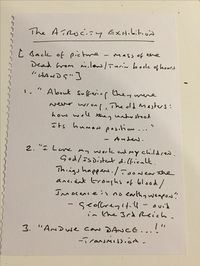 The Atrocity Exhibition
[Back of picture - Mass of the
Dead from
back of hours
1. "About suffering they were
never wrong, The old Masters:
how well they understood
Its human position..."
- Auden.
2. "I love my work and my children.
God/Is distant difficult.
Things happen./Too near the
ancient troughs of blood/
Innocence is no earthly weapon"
- Geoffrey Hill - Ovid
in the 3rd Reich.
3. "AND WE CAN DANCE...!"
- Transmission.